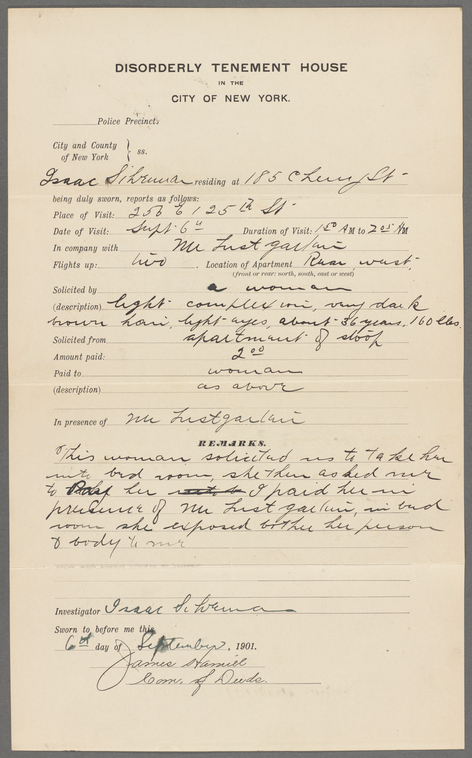 DISORDERLY TENEMENT HOUSE
IN THE
CITY OF NEW YORK.
Police Precinct:
City and County
of New York } ss.
Isaac Silverman residing at 185 Cherry St
being duly sworn, reports as follows:
Place of Visit: 256 E 125th St
Date of Visit: Sept 6th Duration of Visit: 1 50 AM to 2 05 AM
In company with Mr Lustgarten
Flights up: two Location of Apartment Rear west,
(front or rear: north, south, east or west)
Solicited by a woman
(description) light complexion, very dark
brown hair, light eyes, about 36 years, 160 lbs.
Solicited from apartment & stoop
Amount paid: 2 00
Paid to woman
(description) as above
In presence of Mr Lustgarten
REMARKS.
This woman solicited us to take her
into bed room she then asked me
to pay her I paid her in
presence of Mr Lustgarten, in bed
room she exposed her person
& body to me
Investigator Isaac Silverman
Sworn to before me this
6th day of September, 1901.
James Hamill
Com. of Deeds.